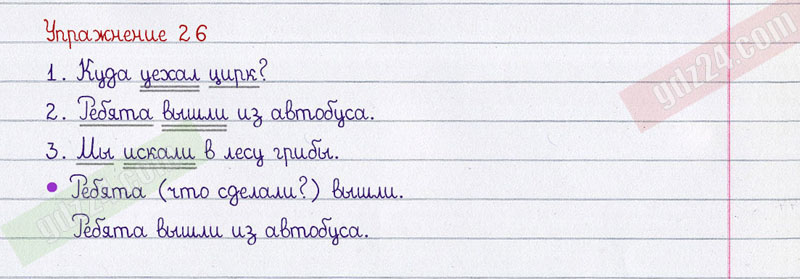 Упражнение 26
1. Куда уехал цирк?
2. Ребята вышли из автобуса.
3. Мы искали в лесу грибы.
• Ребята (что сделали?) вышли.
Ребята вышли из автобуса.
gdz24.com
gdz24.com